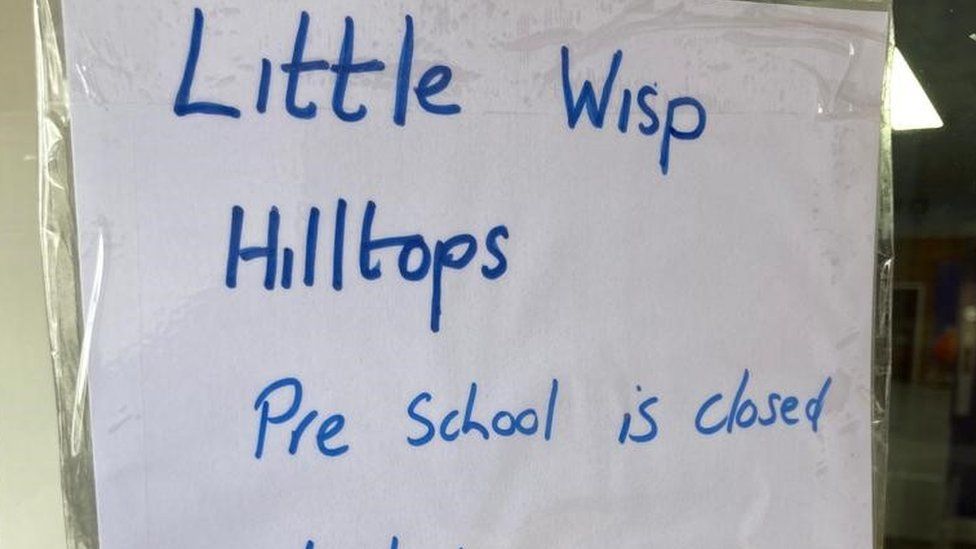 Little Wisp
Hilltops
Pre School is closed